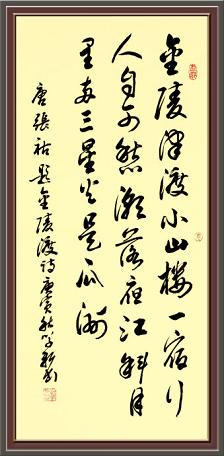 金陵津渡小山樓一宿行
人自可愁潮落夜江斜月
里兩三星火是瓜洲
唐張祜題金陵渡詩庚寅秋